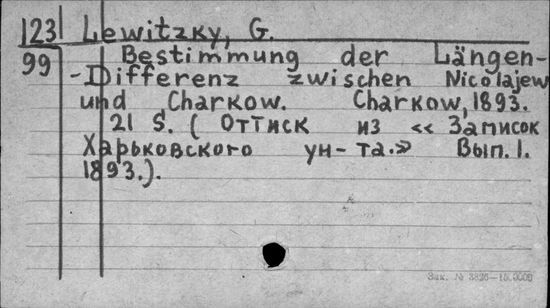 123 Lewitzky, G.
99 Bestimmung der Längen-
-Differenz zwischen Nicolajew
und Charkow. Charkow, 1893.
21 S. (Оттиск из «Записок
Харьковского ун-та.» Вып. 1.
1893.).
Зак. № 3826—15.000